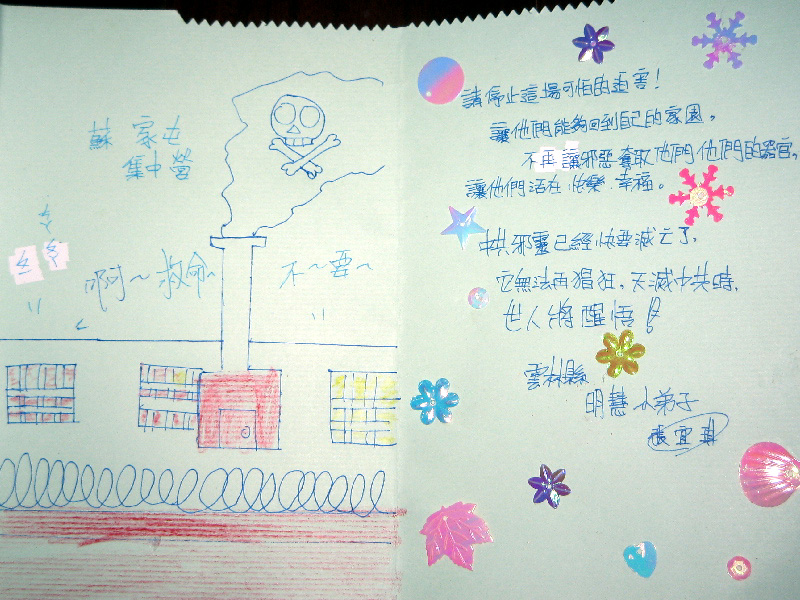 蘇家屯
集中營
啊～救命～
不～要～
請停止這場可怕的迫害！
讓他們能夠回到自己的家園。
不再讓邪惡奪取他們他們的器官，
讓他們活在快樂、幸福。
中共邪靈已經快要滅亡了，
它無法再猖狂，天滅中共時，
世人將醒悟！
雲林縣
明慧小弟子
張宜